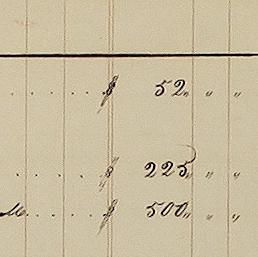 . . . . . $ 52 " " "
. . . . . $ 225 " " "
M. . . . . $ 500 " " "